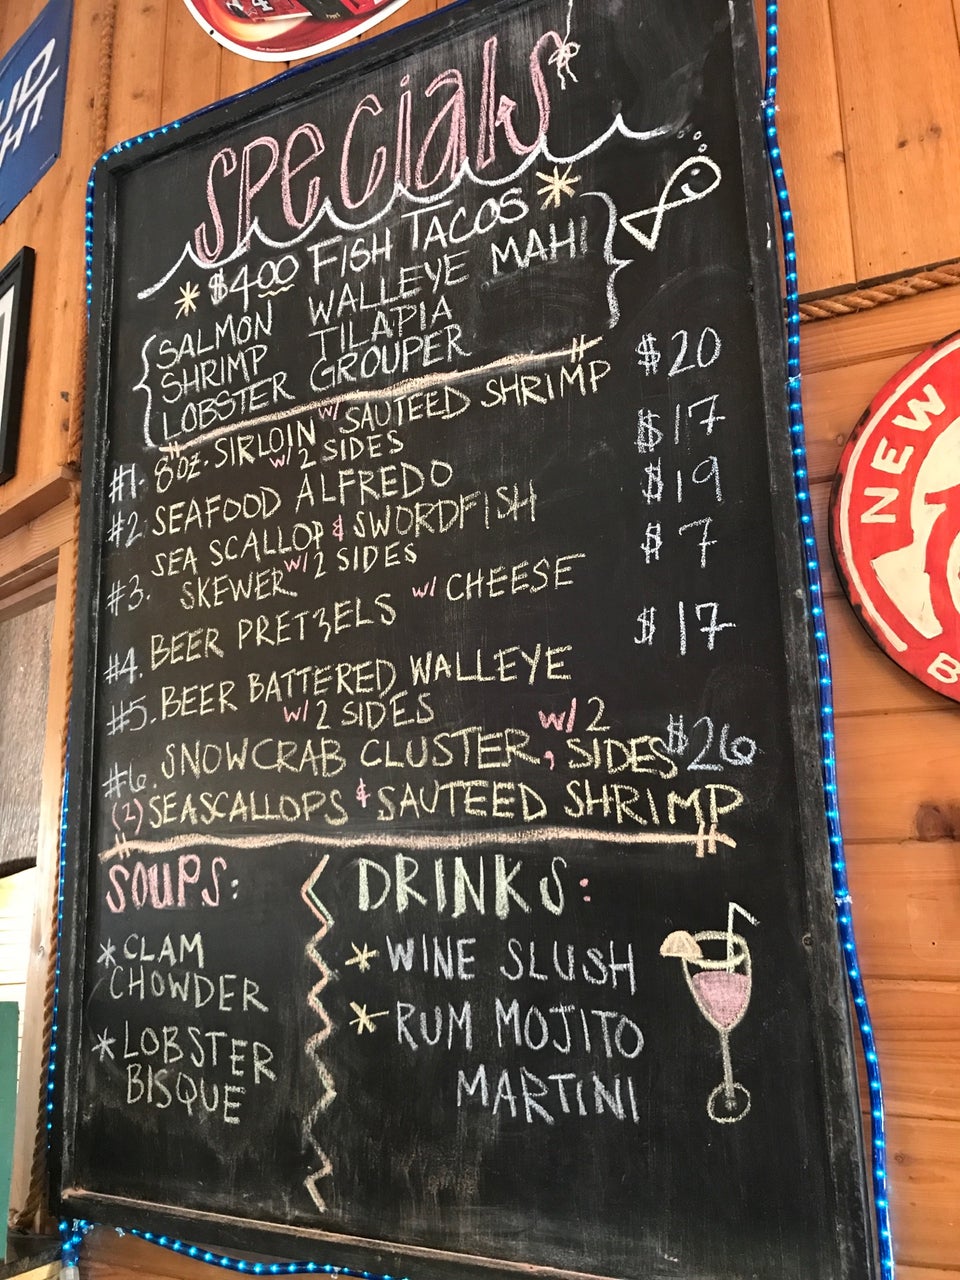 UD
HT
SPECIALS
* $4.00 FISH TACOS *
SALMON WALLEYE MAHI
SHRIMP TILAPIA
LOBSTER GROUPER
#1. 8oz. SIRLOIN w/ SAUTEED SHRIMP $20
w/ 2 SIDES
#2. SEAFOOD ALFREDO $17
SEA SCALLOP & SWORDFISH $19
#3. SKEWER w/ 2 SIDES
#4. BEER PRETZELS w/ CHEESE $7
#5. BEER BATTERED WALLEYE $17
w/ 2 SIDES
#6. SNOWCRAB CLUSTER, w/ 2 SIDES $26
(2) SEASCALLOPS & SAUTEED SHRIMP
SOUPS:
* CLAM
CHOWDER
* LOBSTER
BISQUE
DRINKS:
* WINE SLUSH
* RUM MOJITO
MARTINI
NEW
B